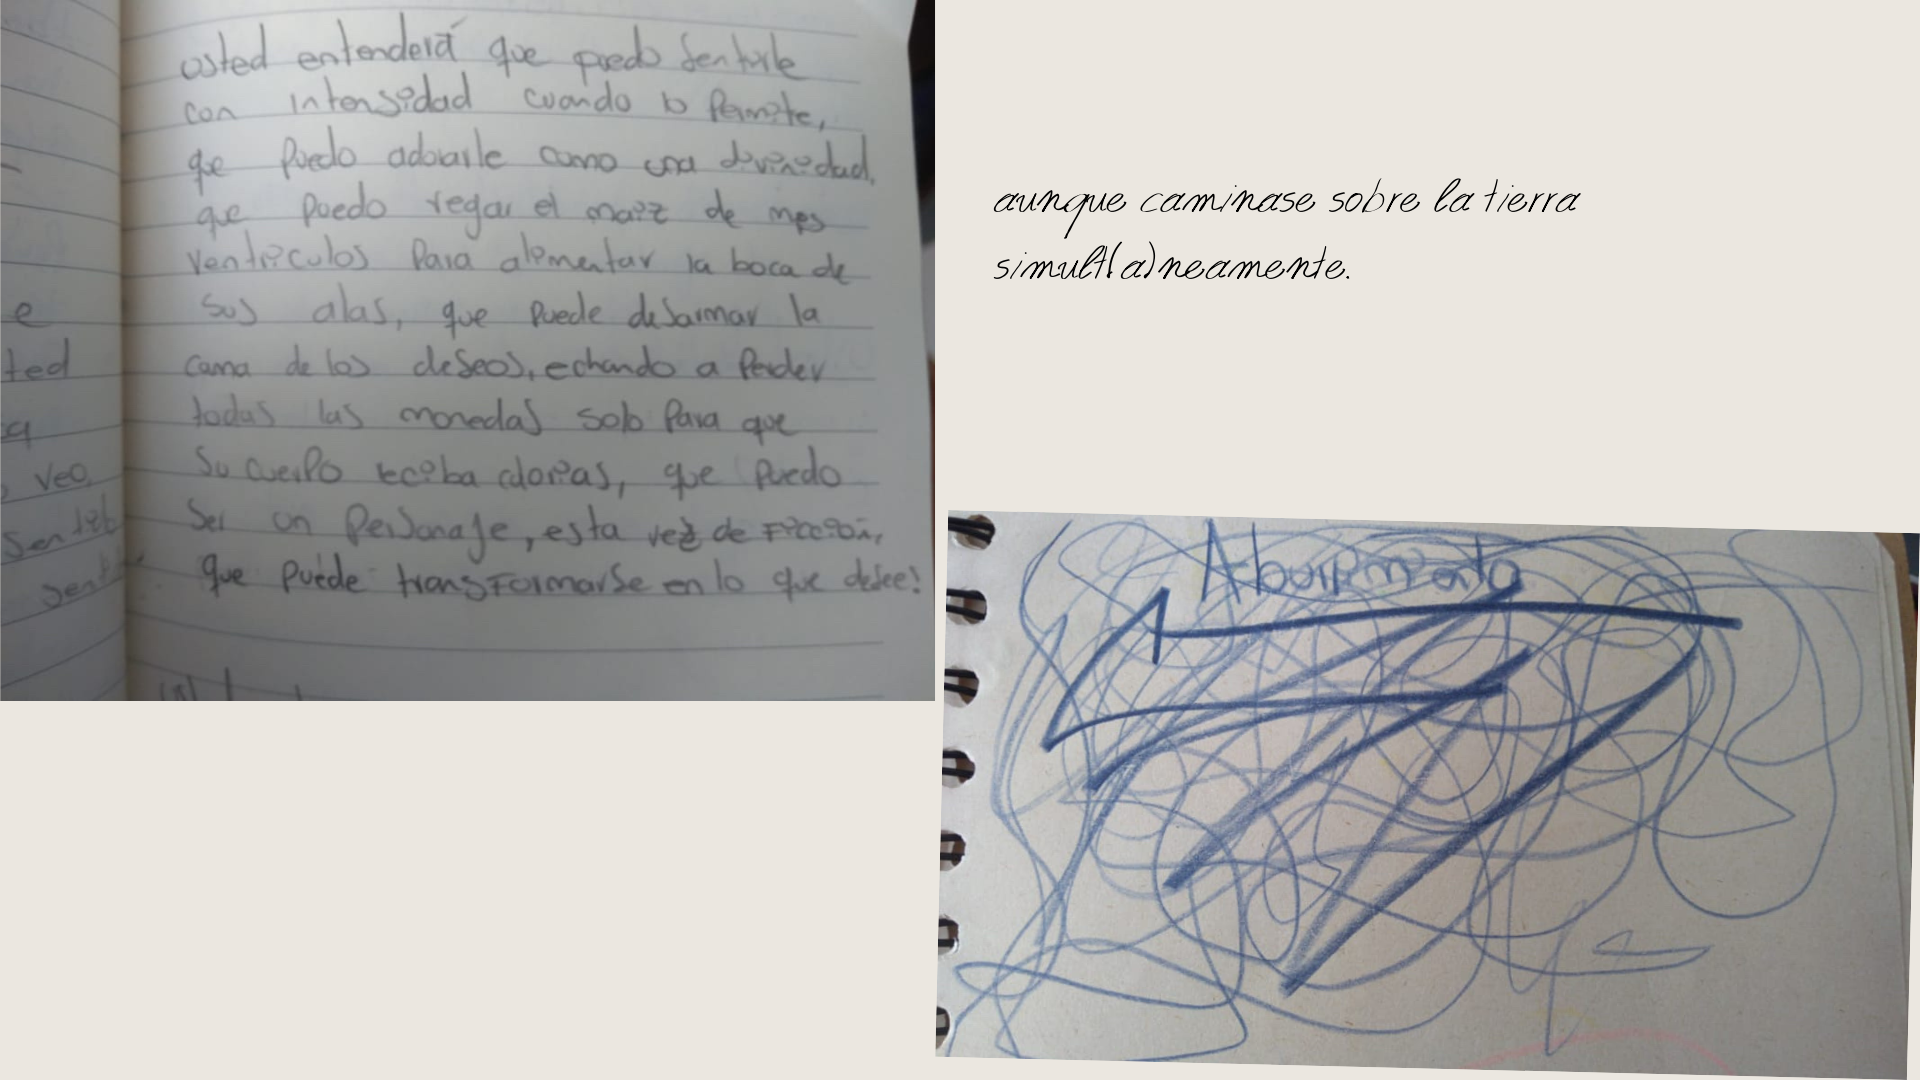 usted entenderá que puedo sentirle
con intensidad cuando lo permite,
que puedo adorarle como una divinidad,
que puedo regar el maíz de mis
ventriculos para alimentar la boca de
sus alas, que puede desarmar la
cama de los deseos, echando a perder
todas las monedas solo para que
su cuerpo reciba calorias, que puedo
ser un personaje, esta vez de ficción,
que puede transformarse en lo que desee!
e
ted
veo
aunque caminase sobre la tierra
simult(a)neamente.
Aburimento